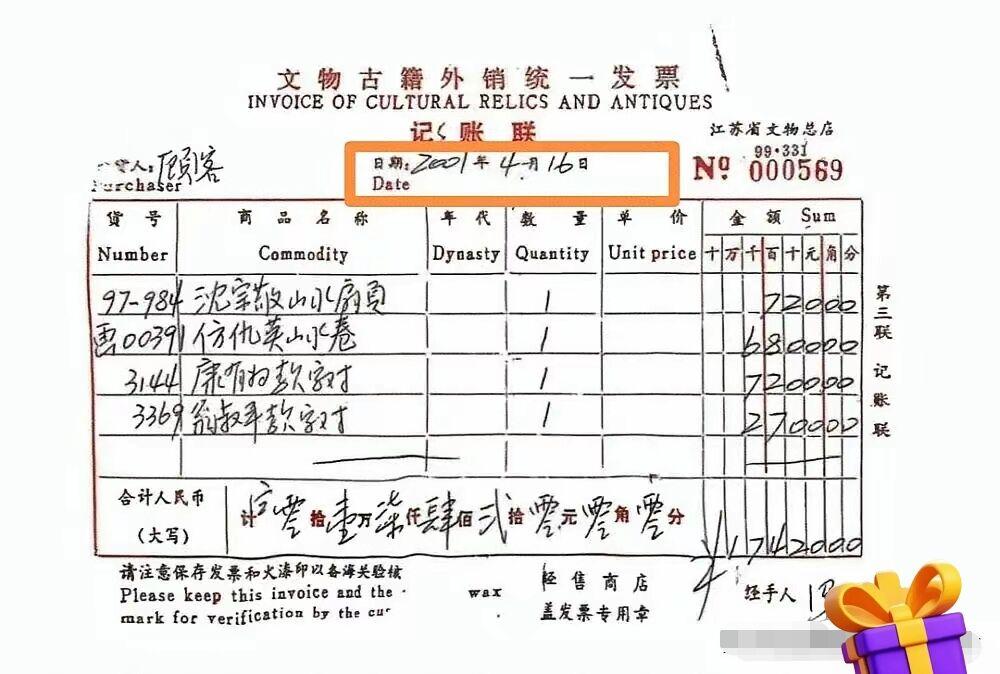 文物古籍外销统一发票
INVOICE OF CULTURAL RELICS AND ANTIQUES
记账联
江苏省文物总店
99·331
货人：顾客
Purchaser
日期：2001年4月16日
Date
Nº 000569
货号 商品名称 年代 数量 单价 金额 Sum
Number Commodity Dynasty Quantity Unit price 十万千百十元角分
97-984 沈宗敬山水扇页 1 72000
画00391 仿仇英山水卷 1 680000
3144 康有为款字对 1 720000
3369 翁叔平款字对 1 270000
第三联 记账联
合计人民币
(大写)
计 零拾壹万柒仟肆佰贰拾零元零角零分
¥1742000
请注意保存发票和火漆印以备海关验核
Please keep this invoice and the wax
mark for verification by the cus
经售商店
盖发票专用章
经手人